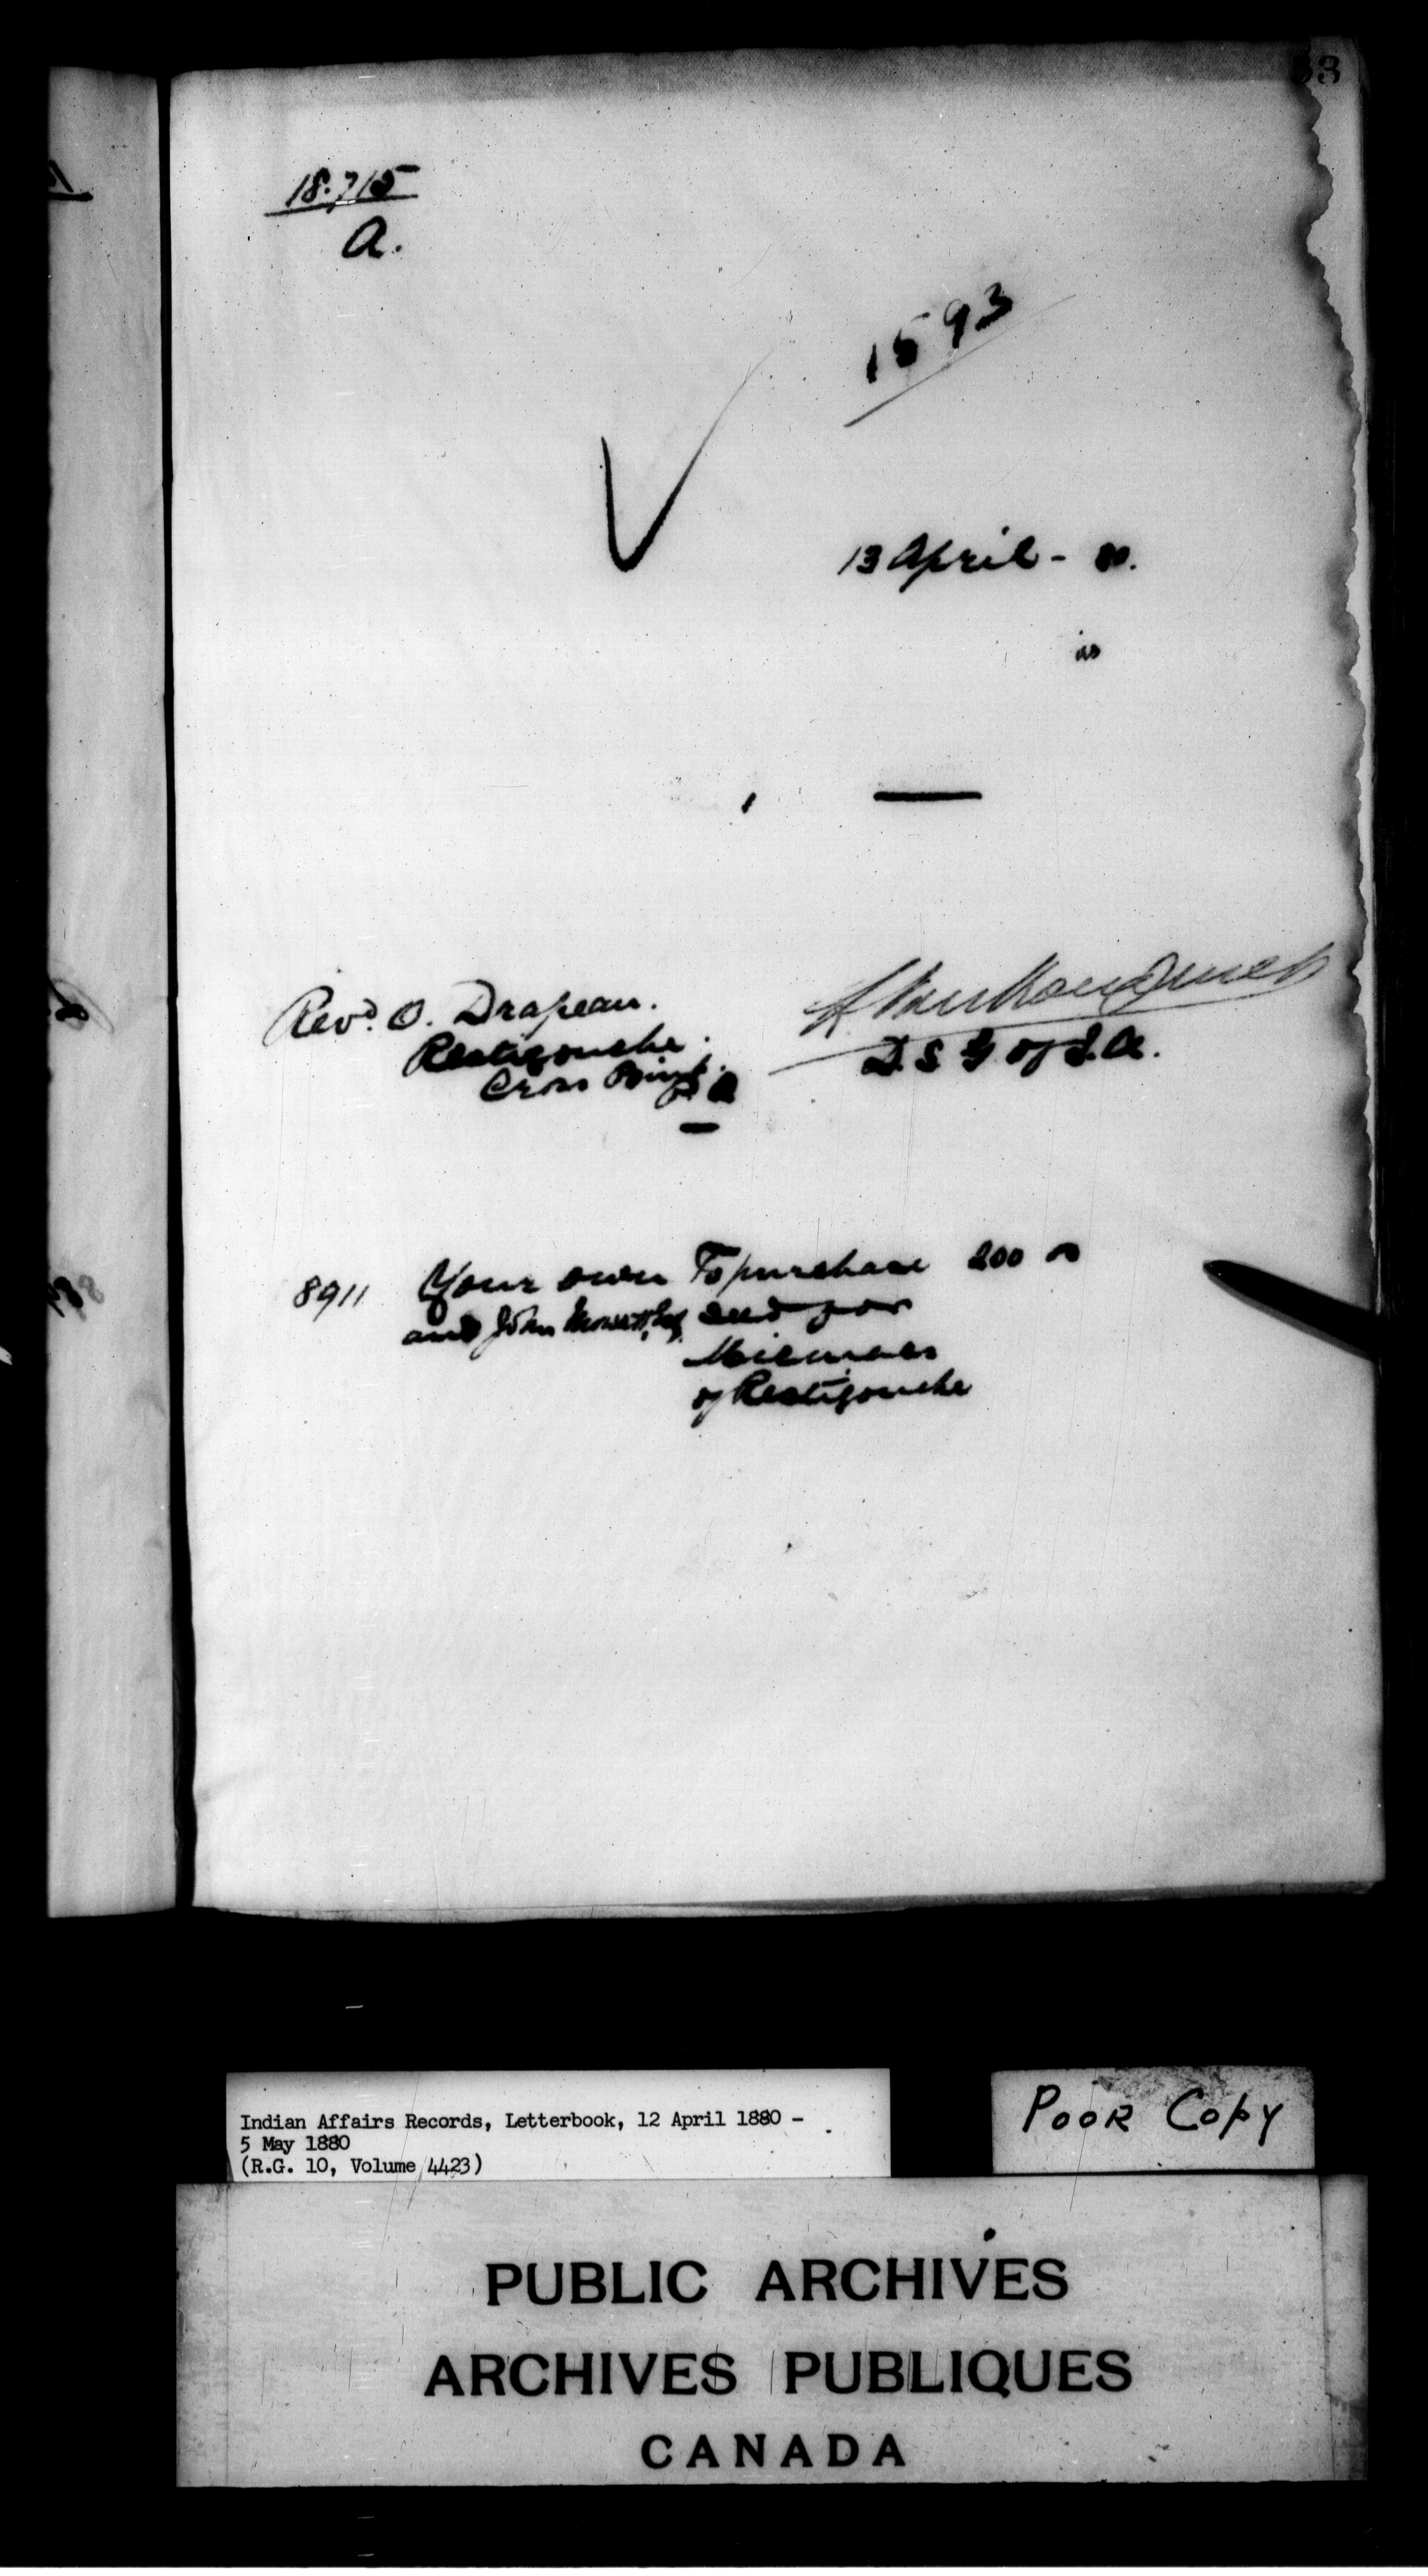 18.715
A.
1593
13 April - 80.
is
Revd. O. Drapeau.
Restigouche.
Cross Point.
P Q
L. VanKoughnet
D. S G of I. A.
8911 Your own To purchase 200 00
and John Mowat, Esq. seed for
Micmacs
of Restigouche
Indian Affairs Records, Letterbook, 12 April 1880 -
5 May 1880
(R.G. 10, Volume 4423)
POOR COPY
PUBLIC ARCHIVES
ARCHIVES PUBLIQUES
CANADA